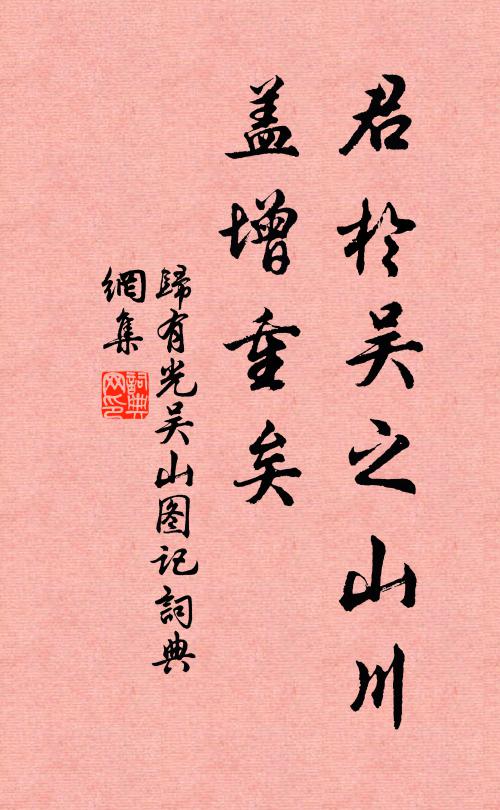 君於吴之山川
盖增重矣
歸有光吴山图记詞典
網集
詞典
网印